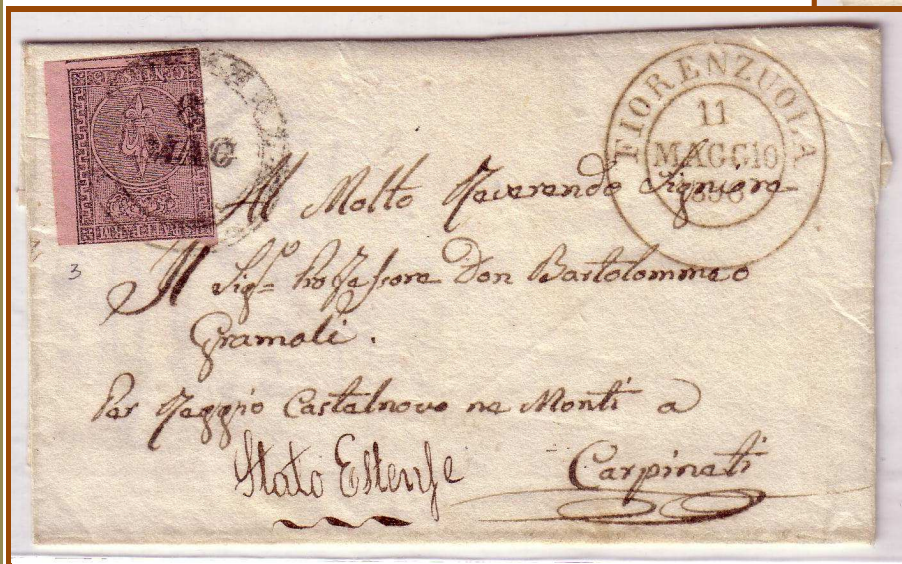 8
MAG
FIORENZUOLA
11
MAGGIO
3
Al Molto Reverendo Signiore
Il Sigr.e Professore Don Bartolommeo
Gramoli.
Per Reggio Castelnovo ne Monti a
Stato Estense
Carpineti